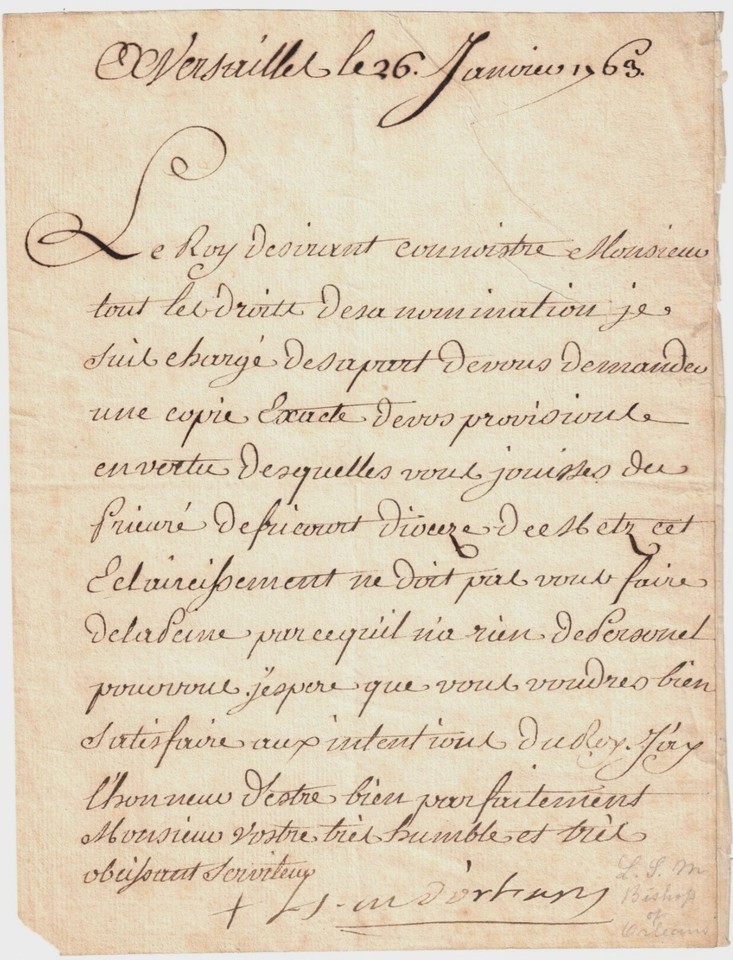 A Versailles le 26. Janvier 1763.
Le Roy desirant connoistre Monsieur
tout les droits desa nomination je
suis chargé desapart devous demander
une copie Exacte devos provisions
envertu desquelles vous jouisses du
Prieuré defricourt dioceze de Metz cet
Eclaircissement ne doit pas vous faire
delaPeine parcequil n'a rien dePersonel
pourvous. j'espere que vous voudres bien
satisfaire aux intentions du Roy. J'ay
l'honneur d'estre bien parfaitement
Monsieur vostre très humble et très
obeissant serviteur
+ L. S. ev d'orleans
L. S. M
Bishop
of
Orleans